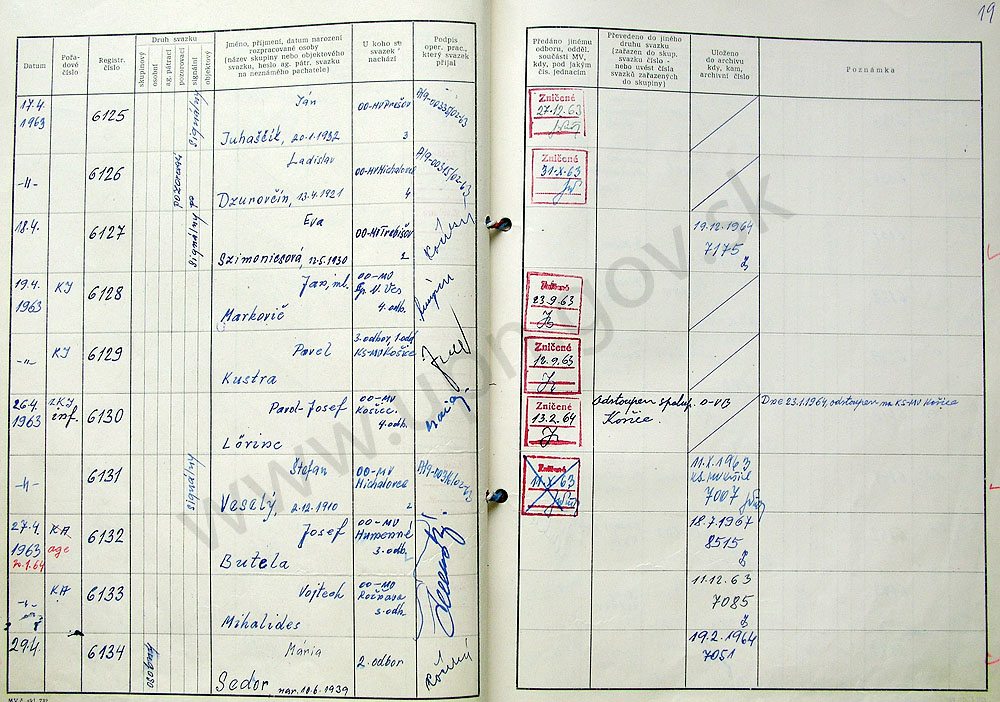 19
Datum
Pořa-
dové
číslo
Registr.
číslo
Druh svazku
skupinový
osobní
ag. pátrací
pozorovací
signální
objektový
Jméno, příjmení, datum narození
rozpracované osoby
(název skupiny nebo objektového
svazku, heslo ag. pátr. svazku
na neznámého pachatele)
U koho se
svazek
nachází
Podpis
oper. prac.,
který svazek
přijal
Předáno jinému
odboru, odděl.
součásti MV,
kdy, pod jakým
čís. jednacím
Převedeno do jiného
druhu svazku
(zařazen do skup.
svazku číslo -
nebo uvést čísla
svazků zařazených
do skupiny)
Uloženo
do archivu
kdy, kam,
archivní číslo
Poznámka
17.4.
1963
6125
signálny
Ján
Juhaščík, 20.1.1932
OO-MV Prešov
3
A/9-00330/02-63
Zničené
27.12.63
-"-
6126
pozorovací
Ladislav
Dzurovčin, 13.4.1921
OO-MV Michalovce
4
A/9-00315/02-63
Zničené
31.X.63
18.4.
6127
signálny
Eva
Szimonicsová, 12.5.1930
OO-MV Trebišov
2
19.12.1964
7175
19.4.
1963
KJ
6128
Jan, ml.
Markovič
OO-MV
Sp. N. Ves
4. odb.
Zničené
23.9.63
-"-
KJ
6129
Pavel
Kustra
3. odbor, 1. odd
KS-MV Košice
Zničené
12.9.63
26.4.
1963
inf.
6130
Pavol-Josef
Lörinc
OO-MV
Košice
4. odb.
Zničené
13.2.64
Odstoupen spolup. O-VB
Košice.
Dne 23.1.1964, odstoupen na KS-MV Košice
-"-
6131
signálny
Štefan
Veselý, 2.12.1910
OO-MV
Michalovce
2
A/9-00361/02-63
Zničené
11.X.63
11.X.1963
7007
27.4.
1963
20.1.64
KA
age
6132
Josef
Butela
OO-MV
Humenné
3. odb.
18.7.1967
8515
-"-
KA
6133
Vojtech
Mihalides
OO-MV
Rožňava
3. odb.
11.12.63
7085
29.4.
6134
osobný
Mária
Sedor nar. 10.6.1939
2. odbor
19.2.1964
7051
www.upn.gov.sk